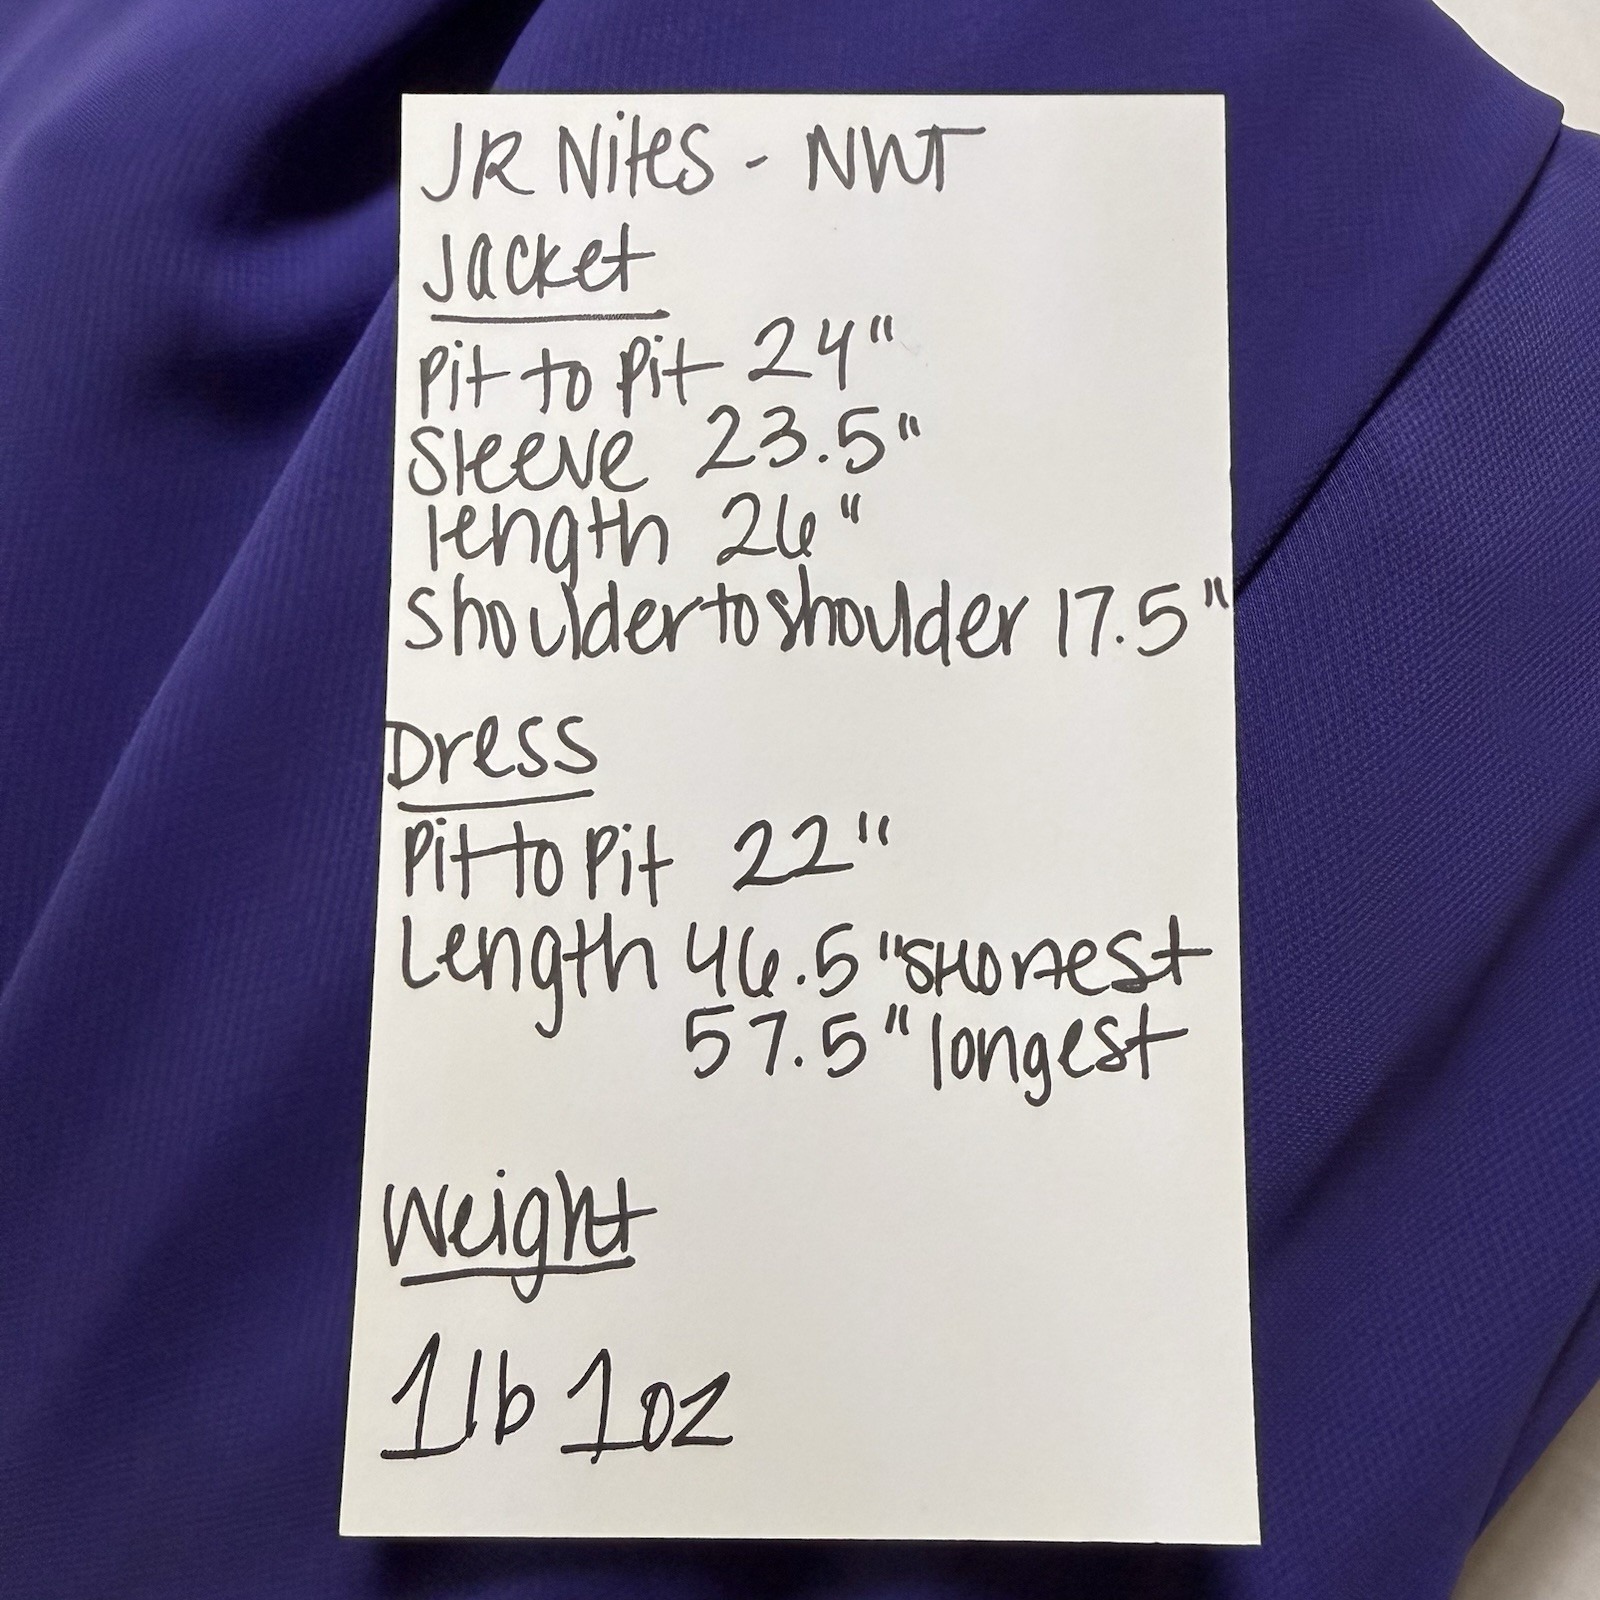 JR Nites - NWT
Jacket
Pit to Pit 24"
Sleeve 23.5"
length 26"
Shoulder to shoulder 17.5"
Dress
Pit to Pit 22"
Length 46.5" Shortest
57.5" longest
Weight
1 lb 1 oz